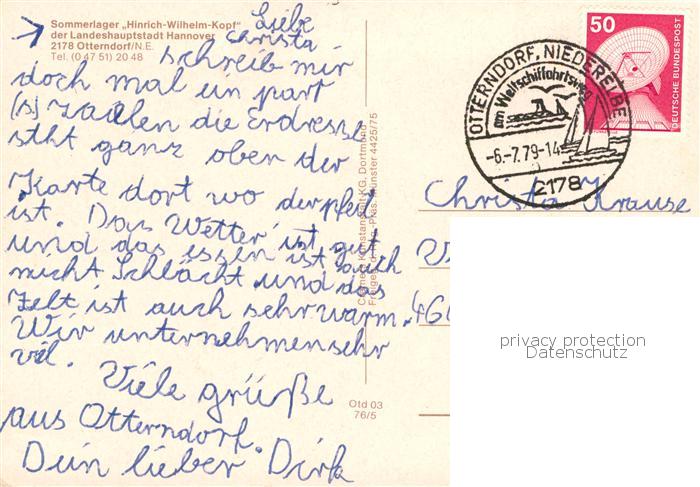 Sommerlager „Hinrich-Wilhelm-Kopf"
der Landeshauptstadt Hannover
2178 Otterndorf/N.E.
Tel. (0 47 51) 20 48
Liebe
Christa
schreib mir
doch mal ein part
(s) zaalen die Erdresse
stht ganz oben der
Karte dort wo der pfeil
ist. Das Wetter ist gut
und das essen ist auch
nicht Schlächt und das
Zelt ist auch sehr warm.
Wir unternehmen sehr
vil. Viele grüße
aus Otterndorf.
Dein lieber Dirk
Cramers Kunstanstalt KG, Dortmund
Freigeg. d. Reg.-Präs. Münster 4425/75
Otd 03
76/5
OTTERNDORF, NIEDERELBE
am Weltschiffahrtsweg
-6.-7.79-14
2178
50
DEUTSCHE BUNDESPOST
Christa Krause
W
460
privacy protection
Datenschutz